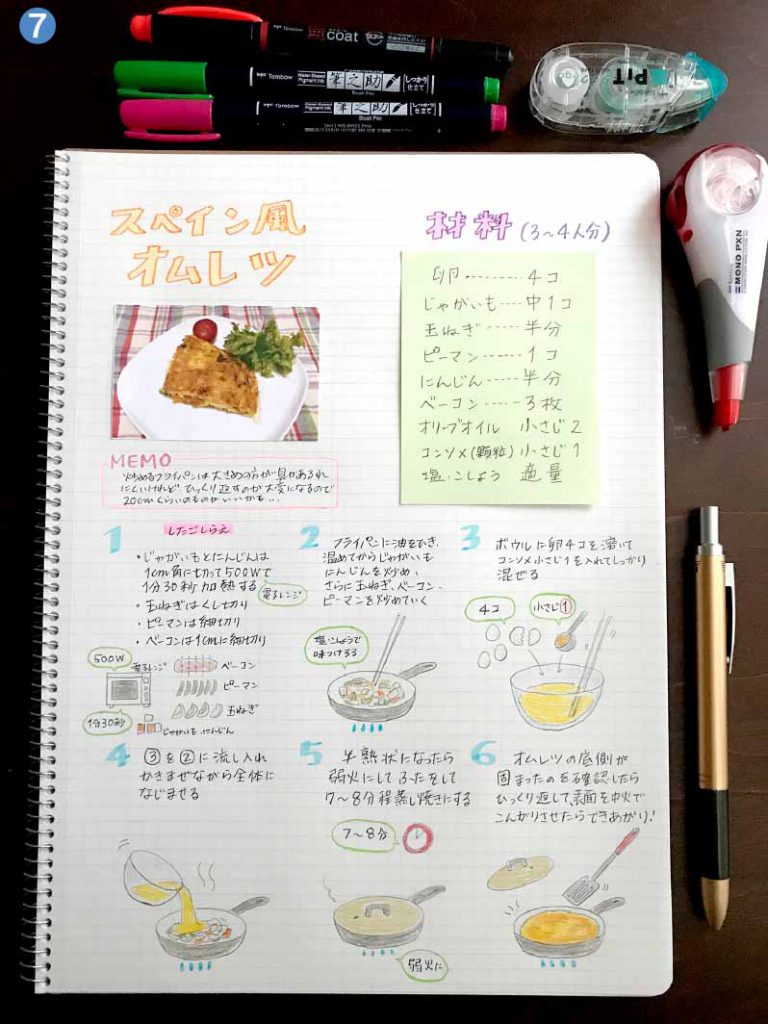 7
coat
Tombow
Water-Based Pigment Ink
筆之助
しっかり仕立て
Brush Pen
Tombow
Water-Based Pigment Ink
筆之助
しっかり仕立て
Brush Pen
PiT
MONO PXN
スペイン風
オムレツ
材料(3〜4人分)
卵………4コ
じゃがいも……中1コ
玉ねぎ……半分
ピーマン……1コ
にんじん……半分
ベーコン……3枚
オリーブオイル 小さじ2
コンソメ(顆粒)小さじ1
塩・こしょう 適量
MEMO
炒めるフライパンは大きめの方が具があふれ
にくいけれど、ひっくり返すのが大変になるので
20cmくらいのものがいいかも…
1 したごしらえ
・じゃがいもとにんじんは
1cm角に切って500Wで
1分30秒加熱する
電子レンジ
・玉ねぎはくし切り
・ピーマンは細切り
・ベーコンは1cmに細切り
500W
電子レンジ
1分30秒
ベーコン
ピーマン
玉ねぎ
じゃがいも、にんじん
2 フライパンに油をひき、
温めてからじゃがいも
にんじんを炒め、
さらに玉ねぎ、ベーコン・
ピーマンを炒めていく
塩・こしょうで
味つける
3 ボウルに卵4コを溶いて
コンソメ小さじ1を入れてしっかり
混ぜる
4コ
小さじ1
4 ③を②に流し入れ
かきまぜながら全体に
なじませる
5 半熟状になったら
弱火にしてふたをして
7〜8分程蒸し焼きにする
7〜8分
弱火に
6 オムレツの底側が
固まったのを確認したら
ひっくり返して、表面を中火で
こんがりさせたらできあがり!